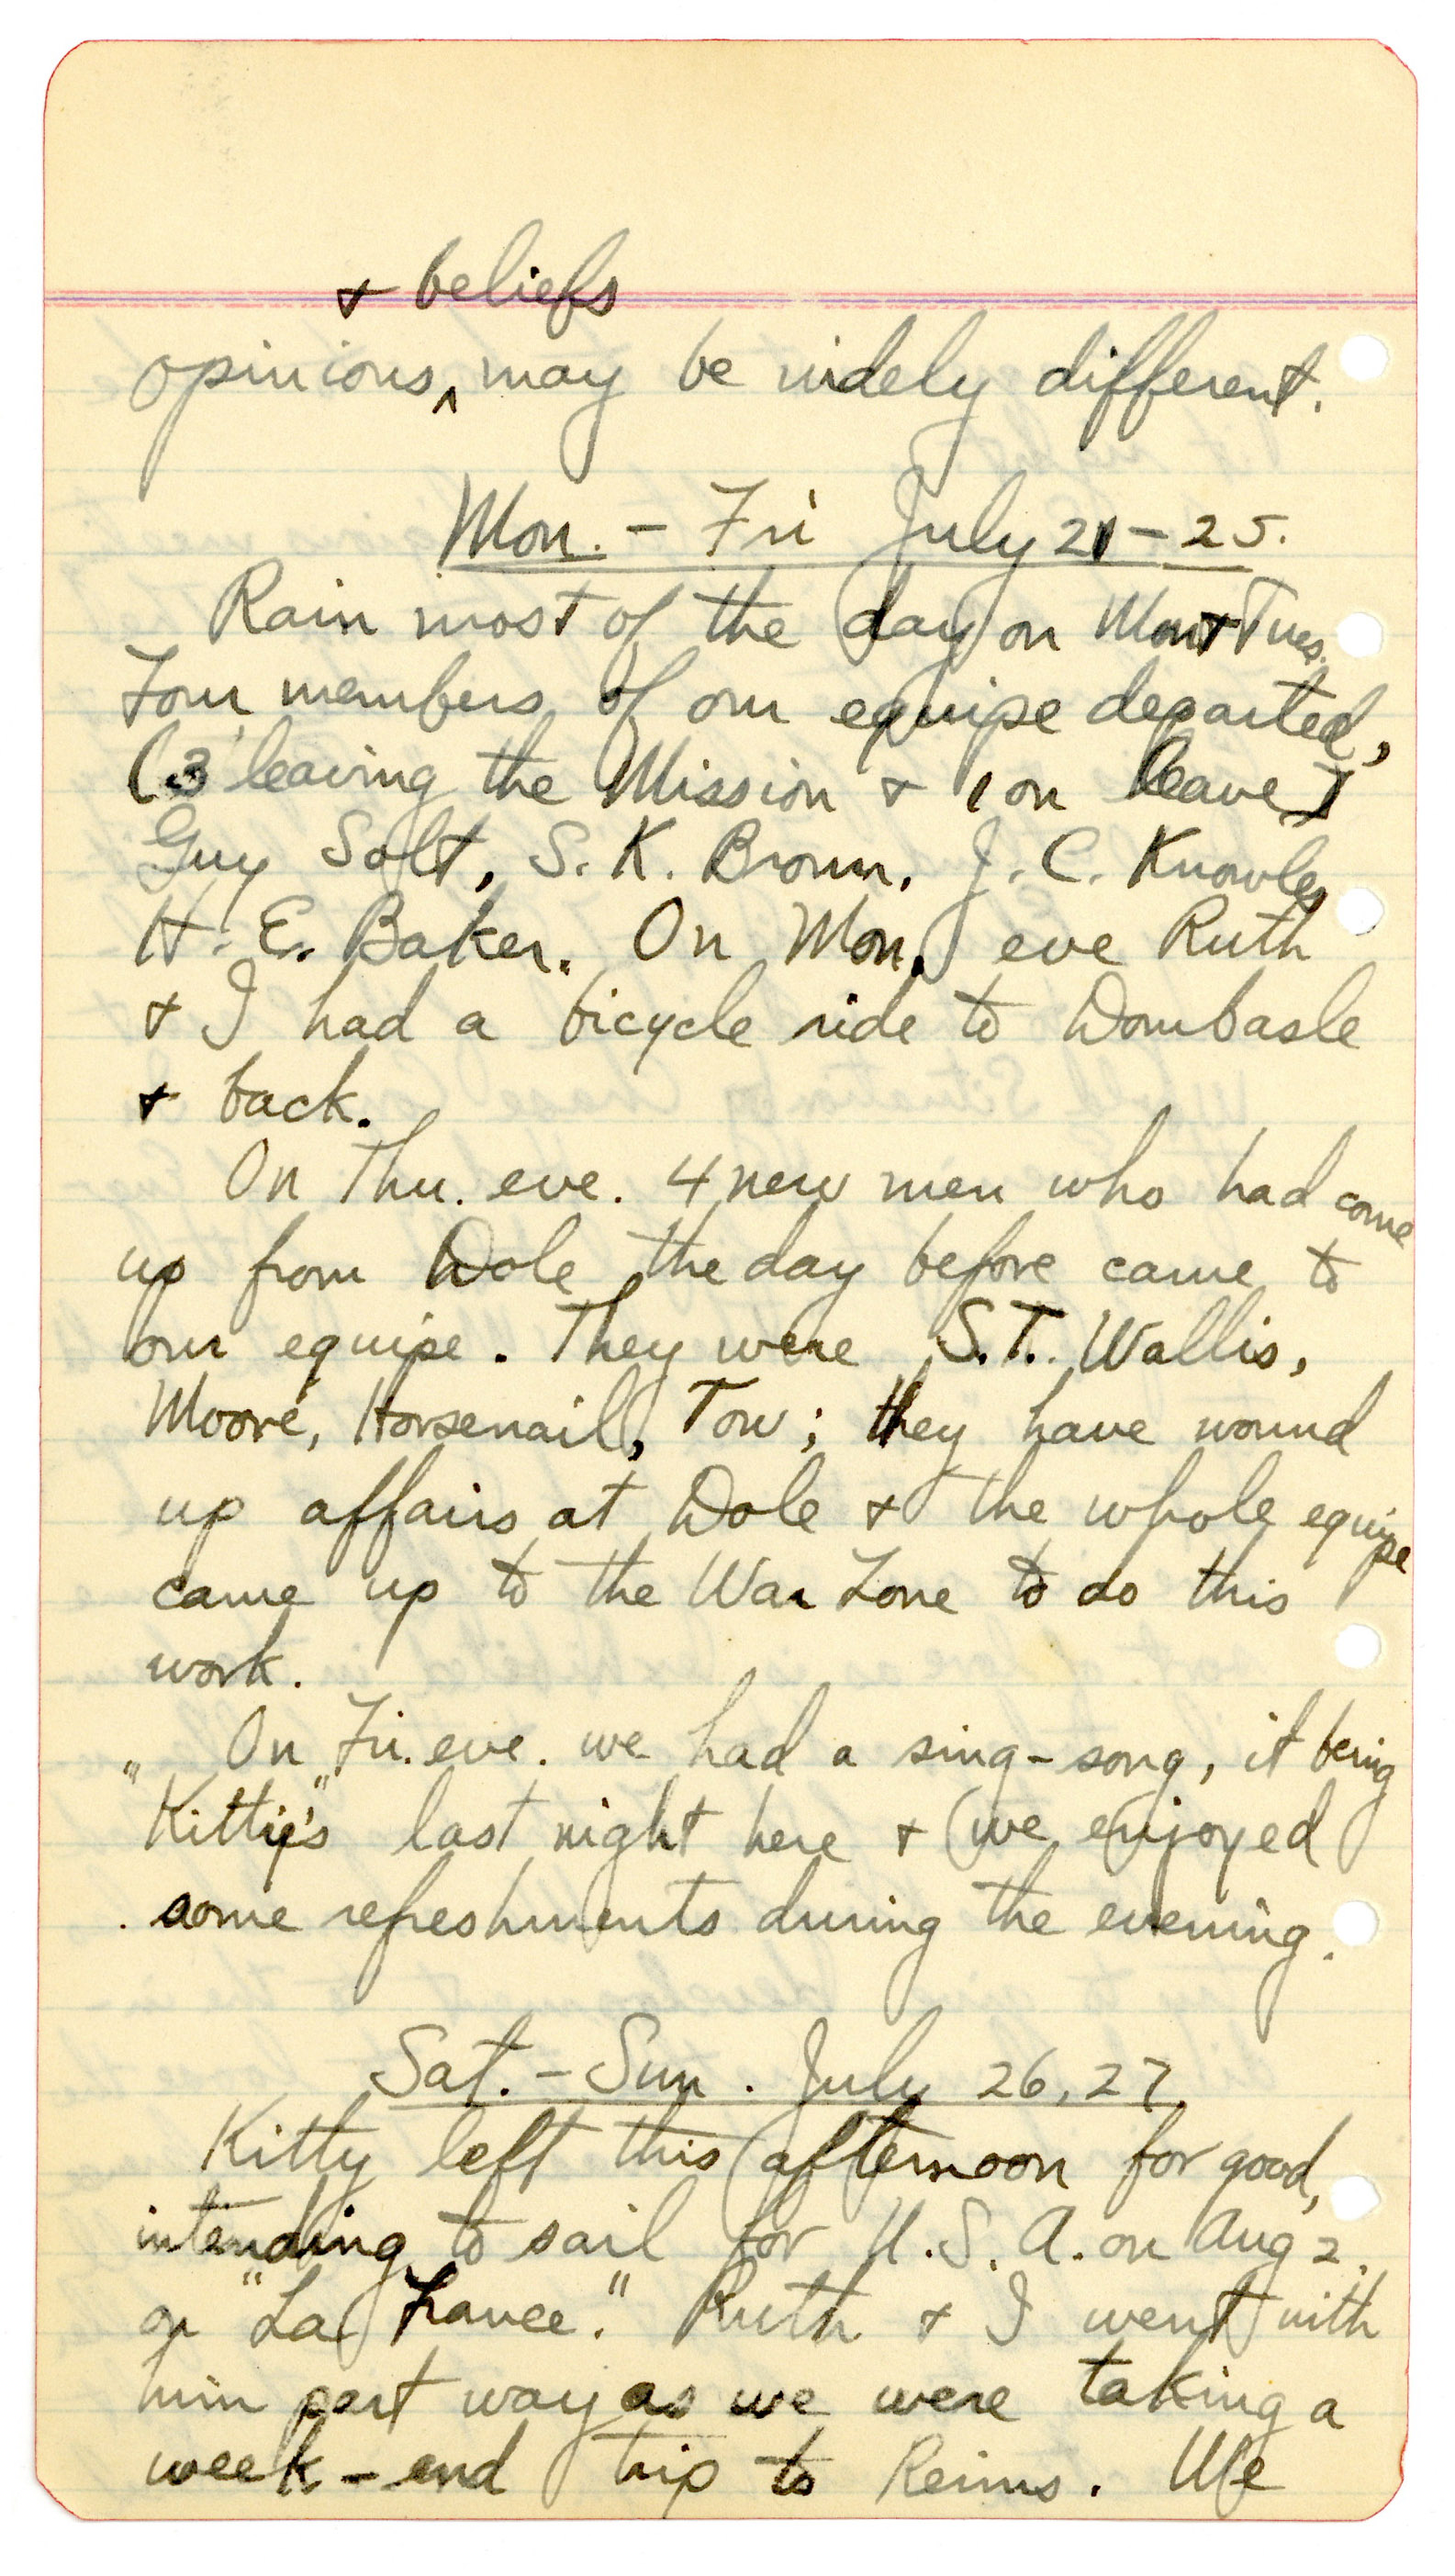 + beliefs
opinions ^ may be widely different.
Mon. - Fri July 21 - 25.
Rain most of the day on Mon + Tues.
Four members of our equipe departed,
(3 leaving the Mission + 1 on leave)
Guy Solt, S. K. Brown, J. C. Knowles
H. E. Baker. On Mon. eve Ruth
+ I had a bicycle ride to Dombasle
+ back.
On Thu. eve. 4 new men who had come
up from Dole the day before came to
our equipe. They were S.T. Wallis,
Moore, Horsenail, Tow; they have wound
up affairs at Dole + the whole equipe
came up to the War Zone to do this
work.
On Fri. eve. we had a sing-song, it being
"Kitty's" last night here + we enjoyed
some refreshments during the evening.
Sat. - Sun. July 26, 27.
Kitty left this afternoon for good,
intending to sail for U.S.A. on Aug 2.
on "La France." Ruth + I went with
him part way as we were taking a
week-end trip to Reims. We